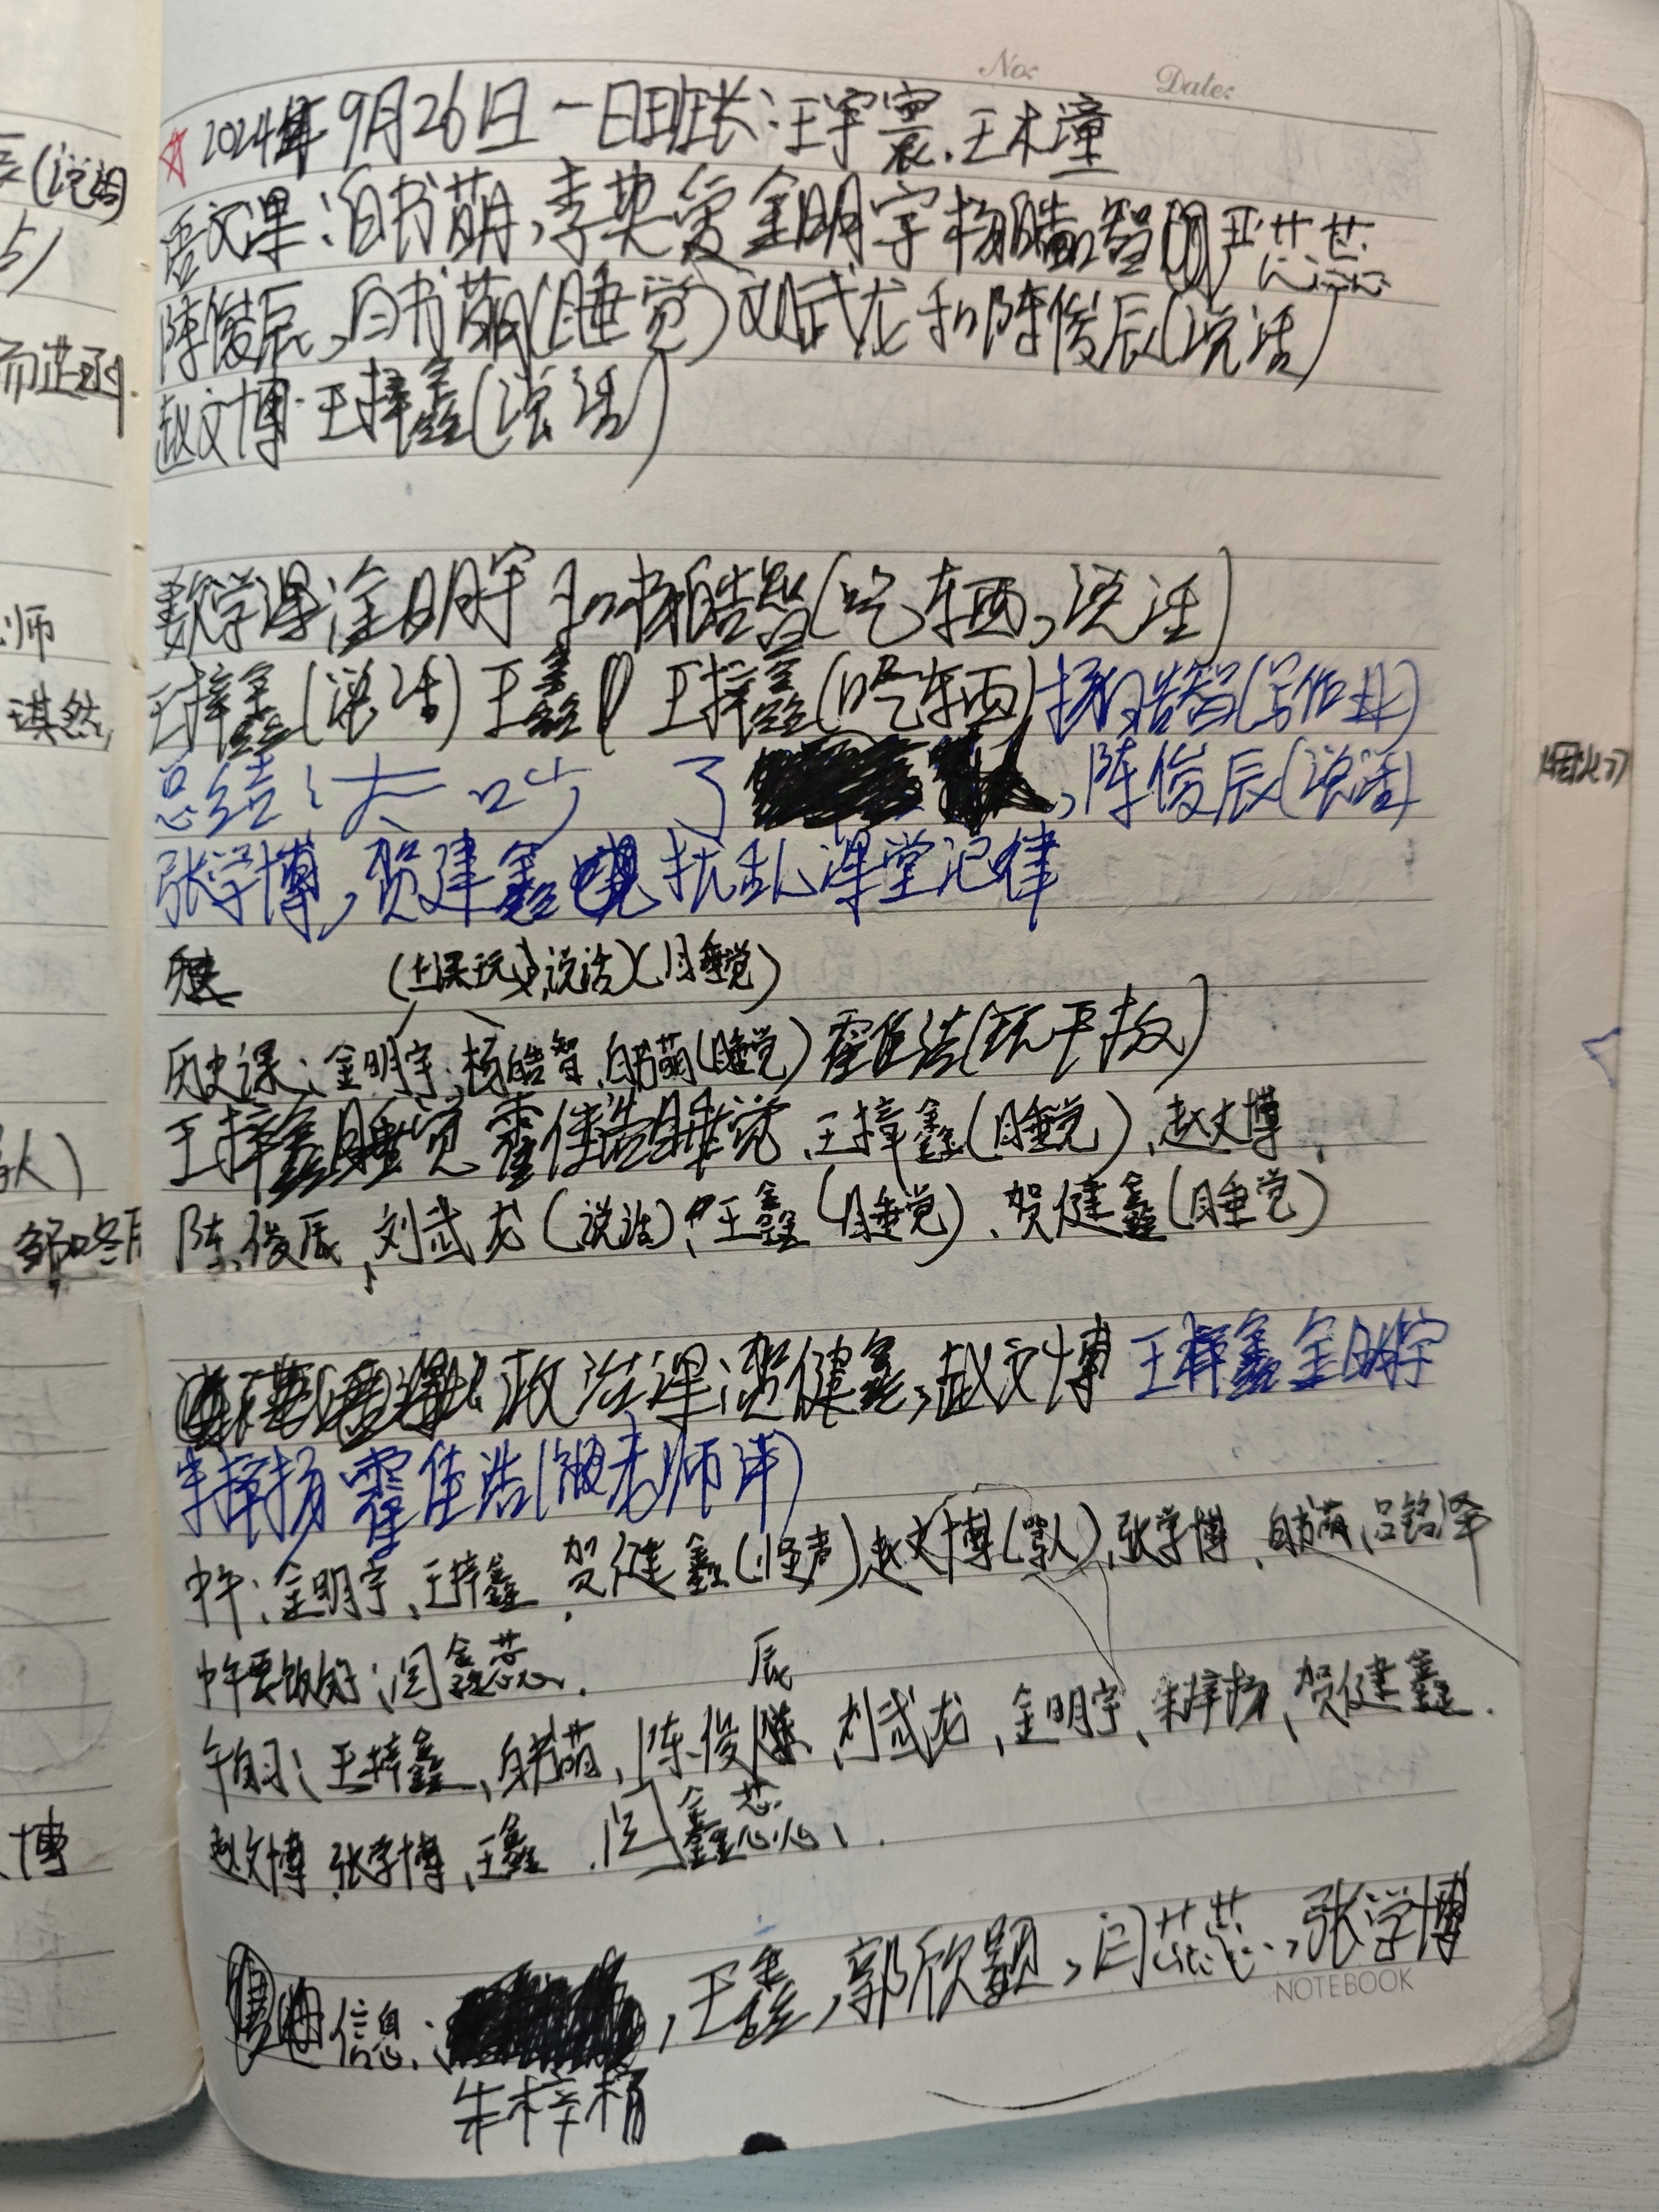 No: Date:
☆2024年9月26日一日班长:汪宇寰.王木潼
语文课:白书萌,李奕 金明宇 杨皓智 闫芯蕊
陈俊辰,白书萌(睡觉)刘武龙和陈俊辰(说话)
赵文博·王梓鑫(说话)
数学课金明宇和杨皓智(吃东西,说话)
王梓鑫(说话)王鑫 王梓鑫(吃东西)杨皓智(写作业)
总结:大叫 了 ,陈俊辰(说话)
张学博,贺建鑫 扰乱课堂记律
(上课玩,说话)(睡觉)
历史课:金明宇.杨皓智.白书萌(睡觉)霍佳浩(玩平板)
王梓鑫睡觉 霍佳浩睡觉.王梓鑫(睡觉),赵文博,
陈俊辰,刘武龙(说话),王鑫(睡觉)、贺健鑫(睡觉)
政治课:贺健鑫,赵文博 王梓鑫 金明宇
朱梓扬 霍佳浩(被老师训)
中午:金明宇、王梓鑫,贺健鑫(怪声)赵文博(骂人),张学博、白书萌,吕铭泽
中午要饭的:闫鑫蕊.
辰
午自习:王梓鑫、白书萌,陈俊 、刘武龙,金明宇、朱梓扬、贺健鑫.
赵文博.张学博,王鑫.闫鑫蕊、.
信息: ,王鑫,郭欣颖,闫芯蕊,张学博
朱梓杨
NOTEBOOK
(说话)
师
琪然
博